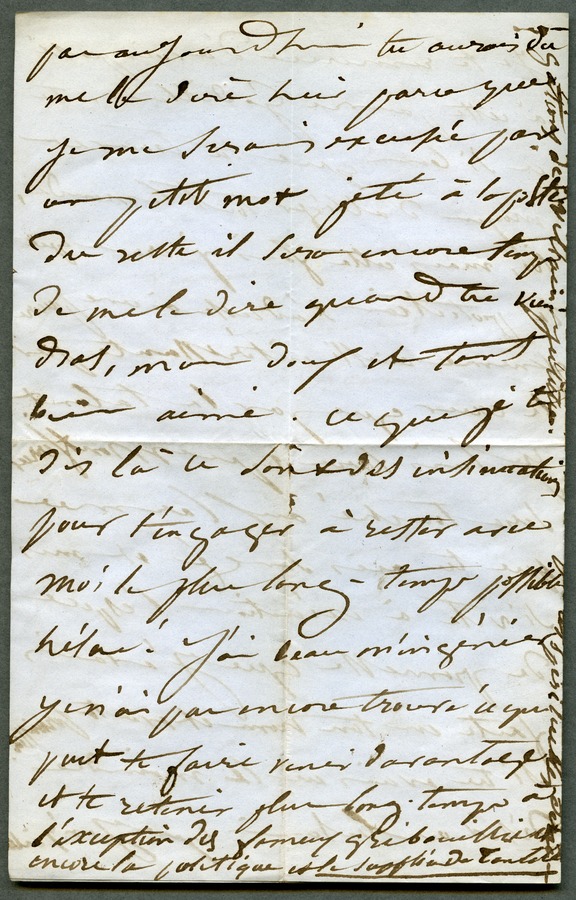 pas aujourd'hui tu aurais dû
me le dire hier parce que
je me serais excusée par
un petit mot jeté à la poste
Du reste il sera encore temps
de me le dire quand tu vien
dras, mon doux et tant
bien aimé. ce que je te
dis là ce sont des insinuations
pour t'engager à rester avec
moi le plus long-temps possible
hélas! J'ai beau m'ingénier
je n'ai pas encore trouvé ce qui
peut te faire venir davantage
et te retenir plus long-temps à
l'exception des fameux gribouillis
encore la politique et le supplice de Tantale